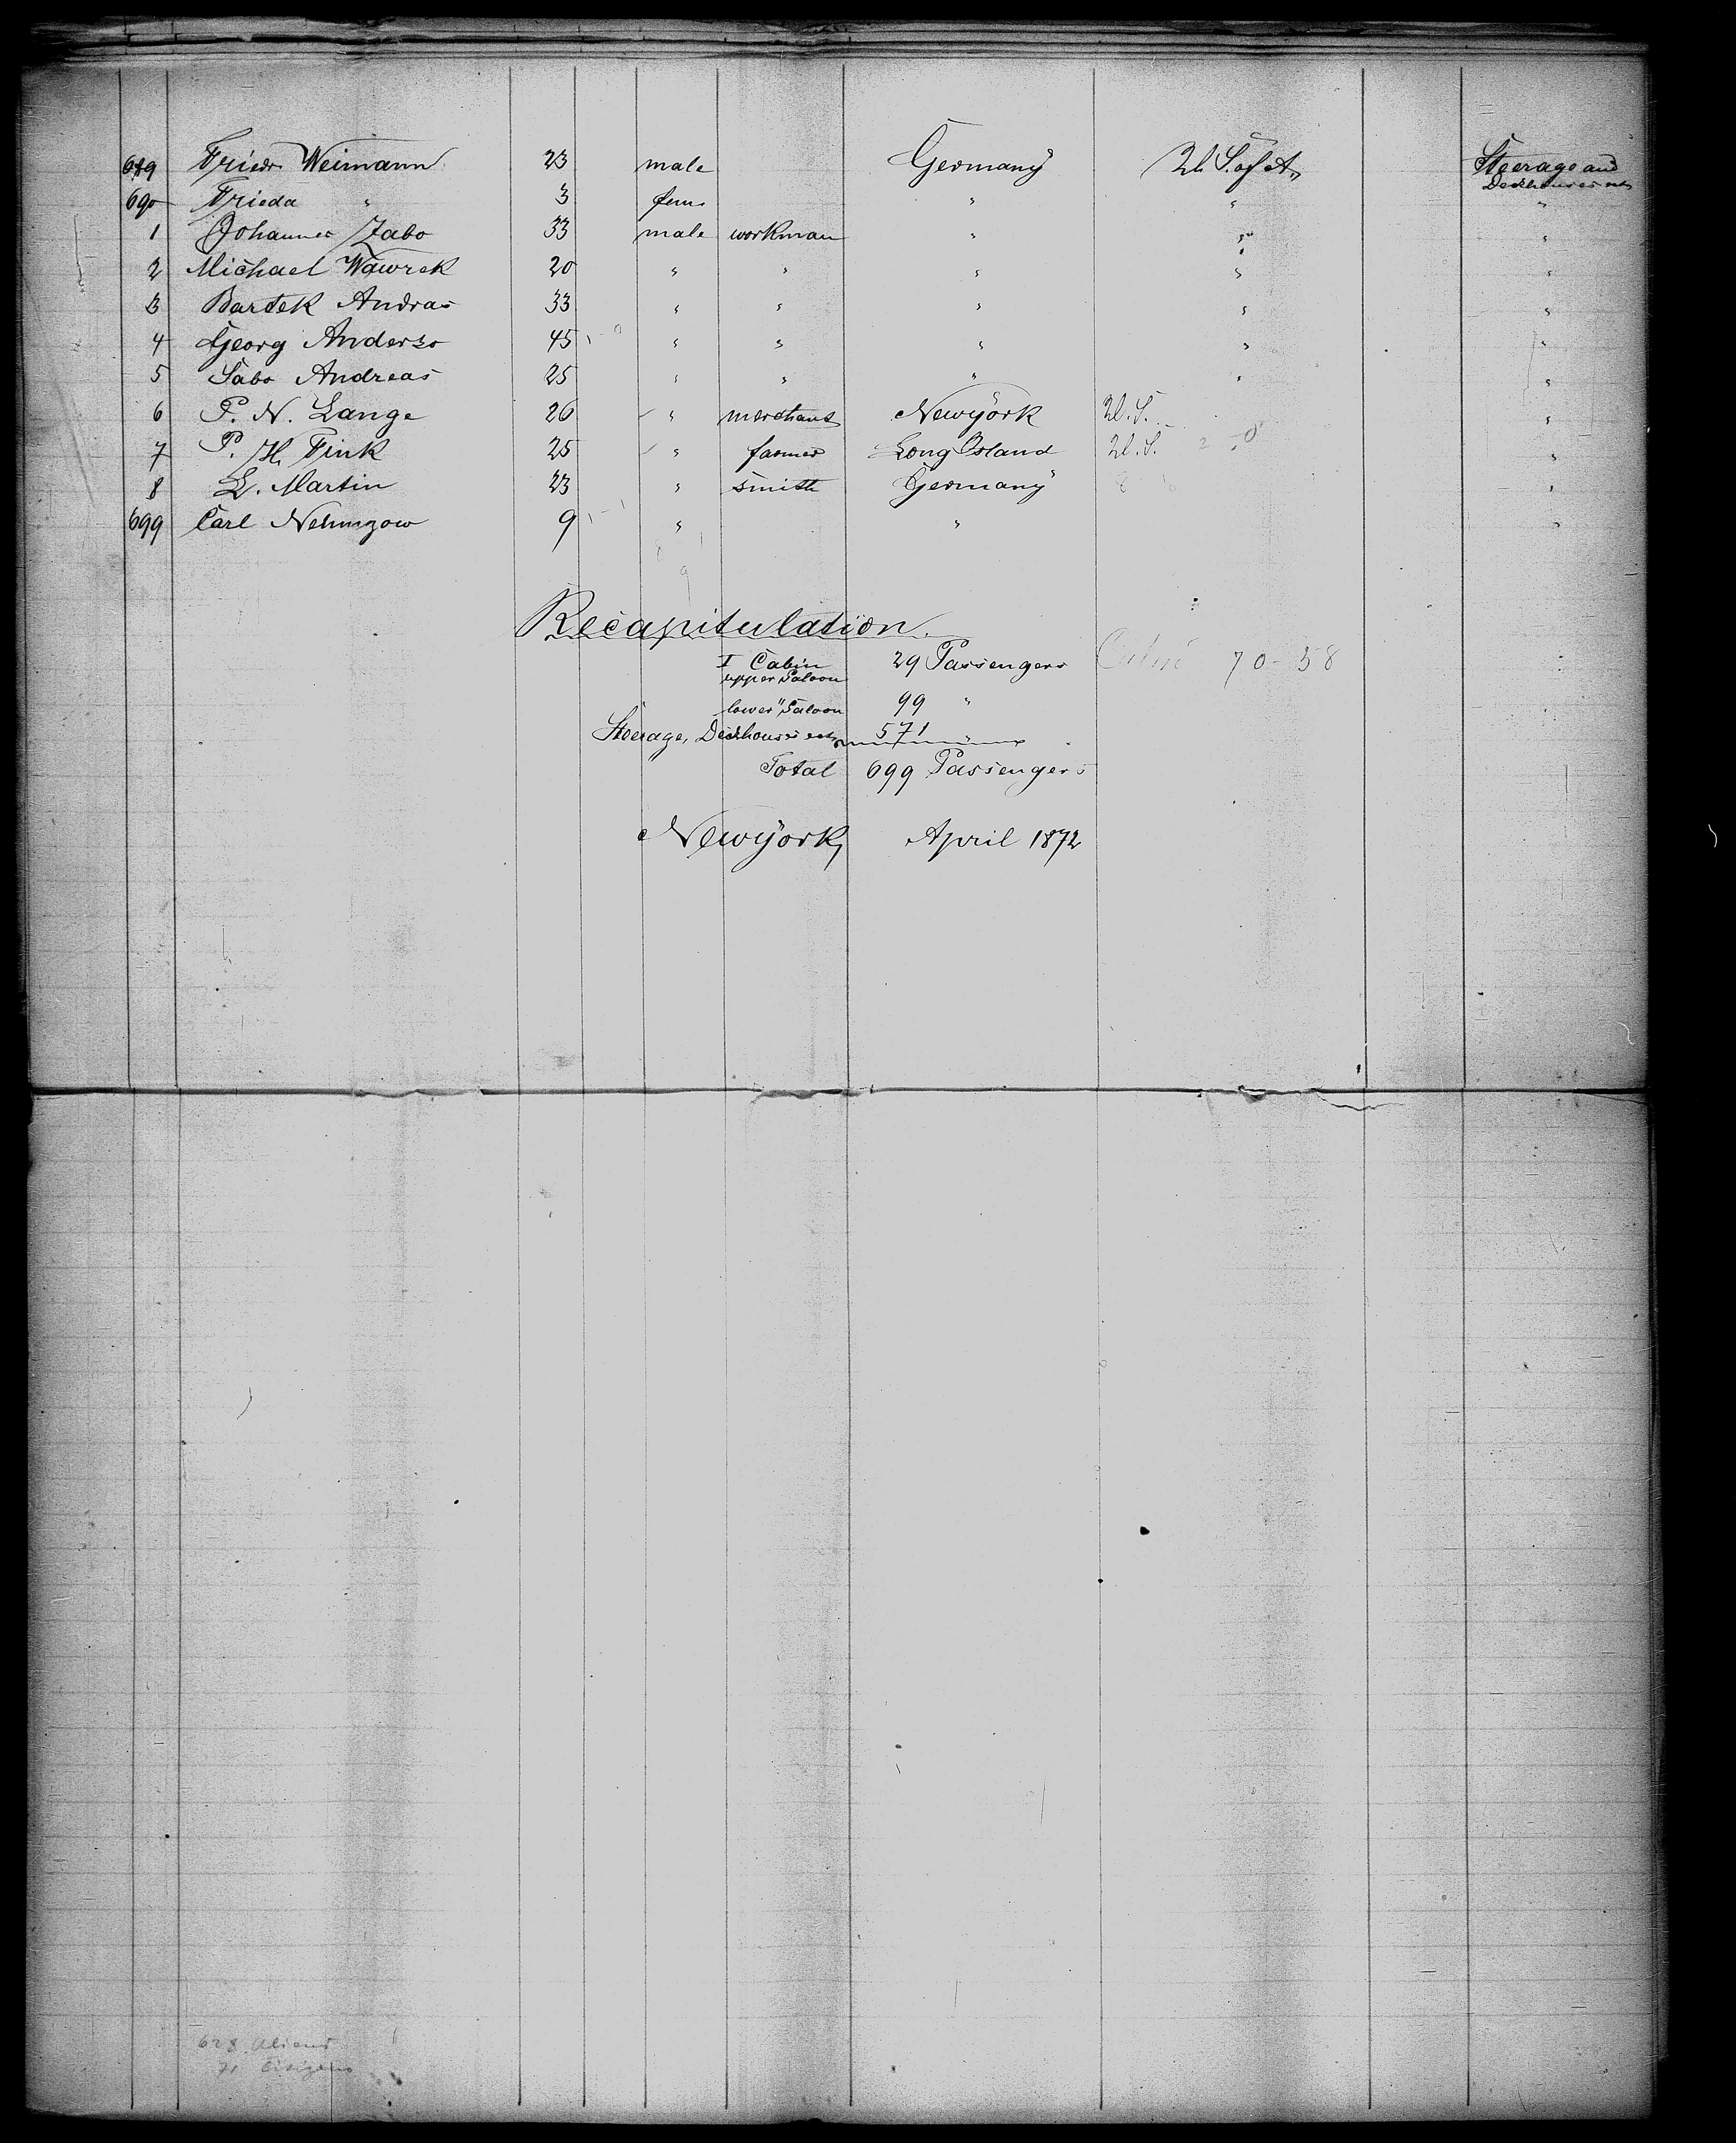 689 Friedr Weimann 23 male Germany U. S. of A. Steerage and
Deckhouses ect
690 Frieda " 3 fem. " " "
1 Johannes Zabo 33 male workman " " "
2 Michael Wawrek 20 " " " " "
3 Bartek Andras 33 " " " " "
4 Georg Anderso 45 " " " " "
5 Sabo Andreas 25 " " " " "
6 P. N. Lange 26 " merchant Newyork U. S. "
7 P. H. Fink 25 " farmer Long Island U. S. "
8 L. Martin 23 " smith Germany "
699 Carl Nehmzow 9 " " "
Recapitulation.
I Cabin 29 Passengers 70-58
upper Saloon
lower " Saloon 99 "
Steerage, Deckhouses ect 571 "
Total 699 Passengers
Newyork, April 1872
628 Aliens
71 Citizens